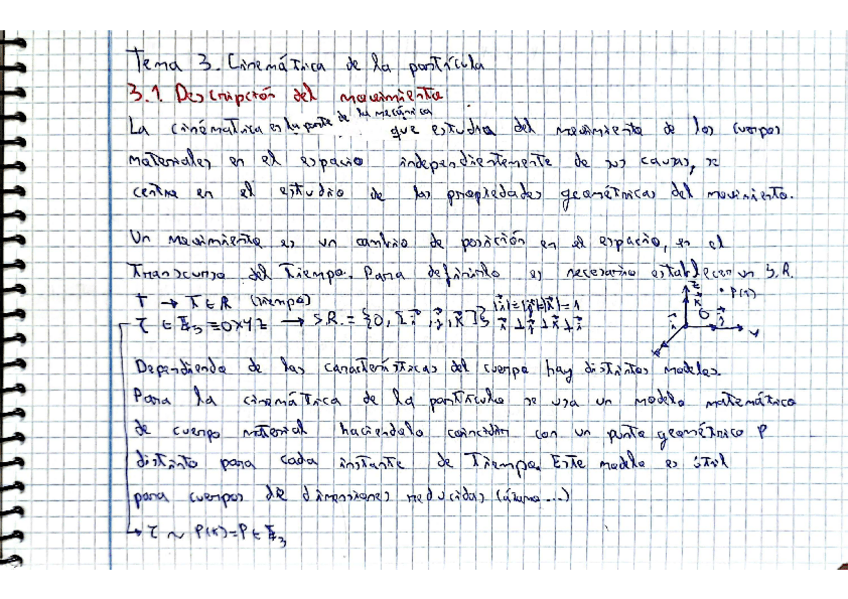 Tema 3. Cinemática de la partícula
3.1. Descripción del movimiento
La cinématica es la parte de la mecánica que estudia del movimiento de los cuerpos
materiales en el espacio independientemente de sus causas, se
centra en el estudio de las propiedades geométricas del movimiento.
Un movimiento es un cambio de posición en el espacio, en el
transcurso del tiempo. Para definirlo es necesario establecer un S.R.
T → t ∈ R (tiempo)
τ ∈ E₃ ≡ OXYZ → S.R. = {O, [i⃗, j⃗, k⃗]} |i⃗|=|j⃗|=|k⃗|=1 i⃗ ⊥ j⃗ ⊥ k⃗ ⊥ i⃗
z k⃗ P(t) O i⃗ j⃗ y x
Dependiendo de las características del cuerpo hay distintos modelos.
Para la cinemática de la partícula se usa un modelo matemático
de cuerpo material haciendolo coincidir con un punto geométrico P
distinto para cada instante de tiempo. Este modelo es útil
para cuerpos de dimensiones reducidas (átomo...)
↳ τ ~ P(t)=P ∈ E₃